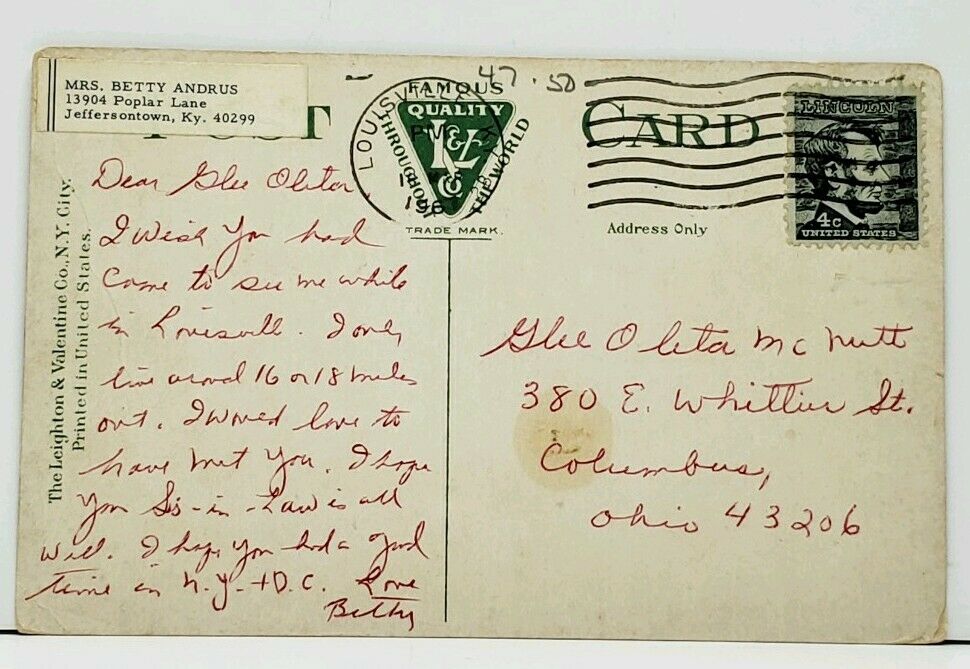 MRS. BETTY ANDRUS
13904 Poplar Lane
Jeffersontown, Ky. 40299
POST CARD
47.50
LOUISVILLE, KY
PM
196
FAMOUS
QUALITY
THROUGHOUT THE WORLD
L&V
Co
TRADE MARK.
Address Only
LINCOLN
4c
UNITED STATES
The Leighton & Valentine Co., N.Y. City.
Printed in United States.
Dear Glee Oleta
I wish You had
Come to see me while
in Louisvill. I only
live around 16 or 18 miles
out. I woued love to
have met You. I hope
Your Sis-in-Law is all
well. I hope you had a good
time in N.Y. + D.C. Love
Betty
Glee Oleta McNutt
380 E. Whittier St.
Columbus,
Ohio 43206